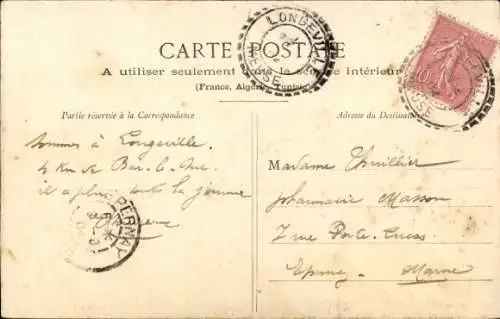 CARTE POSTALE
A utiliser seulement dans le service intérieur
(France, Algérie, Tunisie)
LONGEVILLE
MEUSE
10
MEUSE
Partie réservée à la Correspondance
Adresse du Destinataire
Sommes à Longeville
4 Km de Bar-le-Duc
il a plu toute la journée
EPERNAY
MARNE
Madame Thuillier
pharmacie Masson
7 rue Porte-Lucas
Epernay - Marne